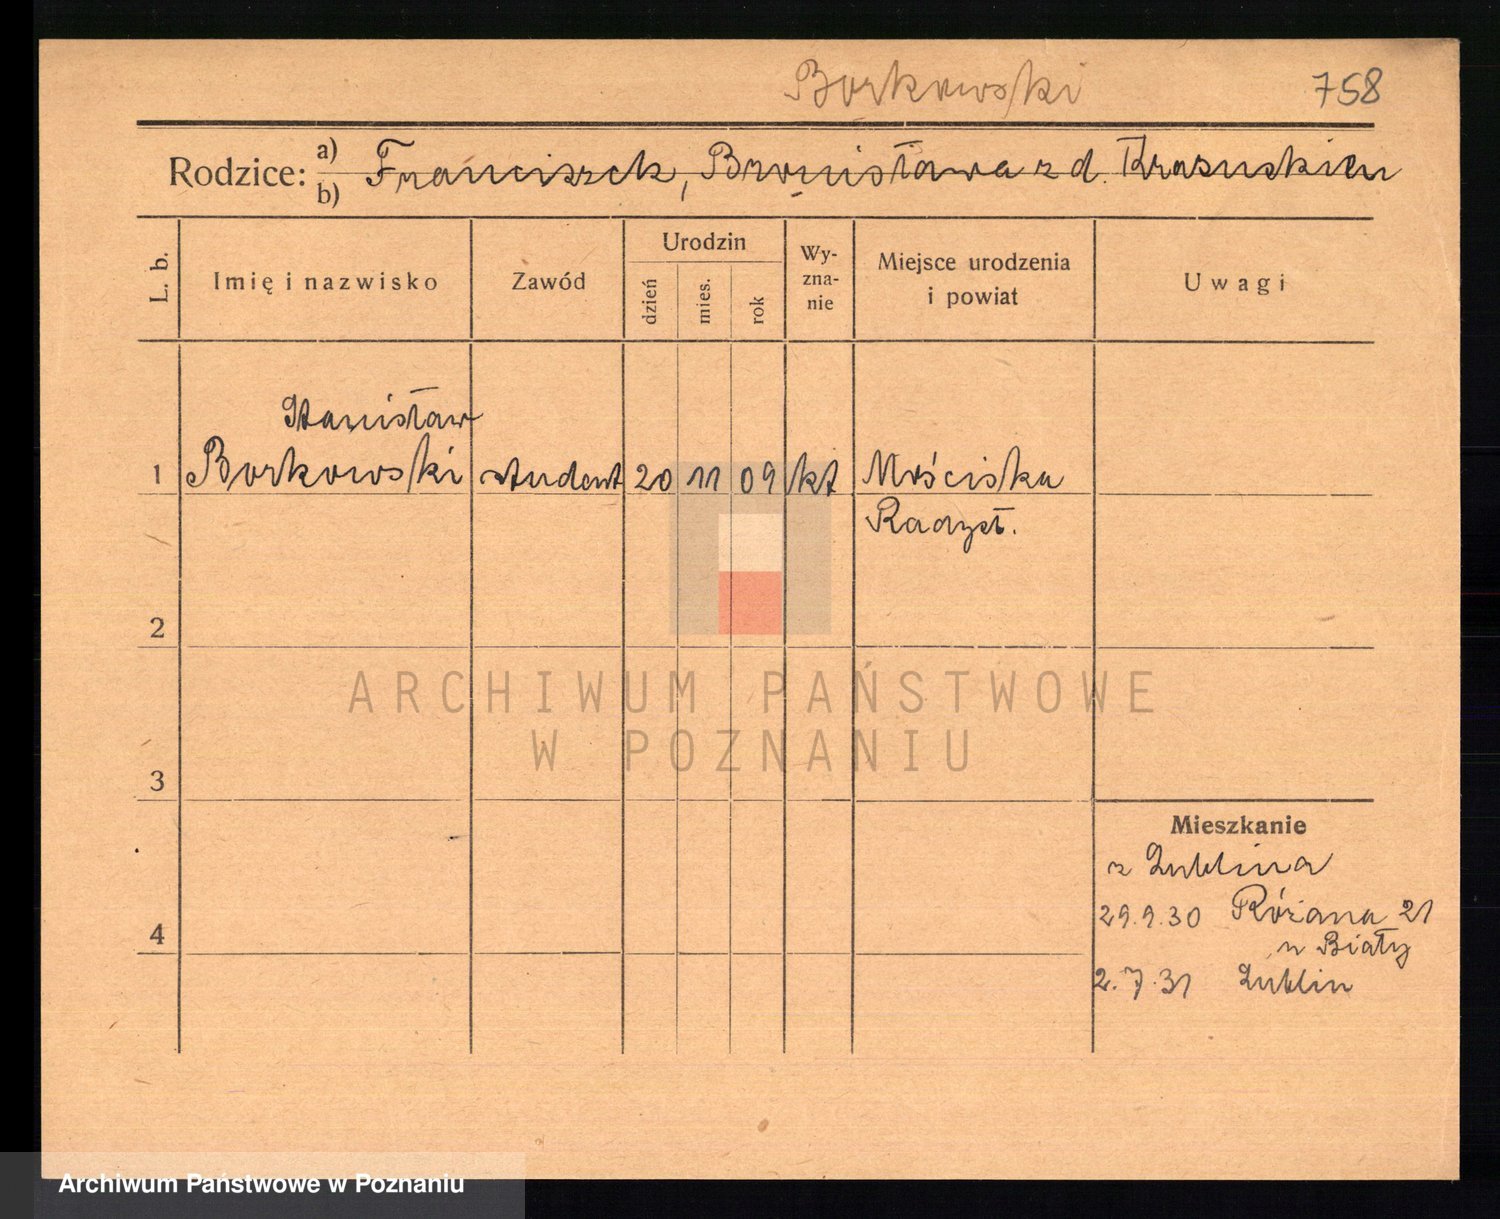 Borkowski 758
Rodzice: a) b) Franciszek, Bronisława z d.
L. b.
Imię i nazwisko
Zawód
Urodzin
dzień
mies.
rok
Wy-
zna-
nie
Miejsce urodzenia
i powiat
Uwagi
Stanisław
1 Borkowski student 20 11 09 kt Mościska
Radzył.
2
3
4
Mieszkanie
z Lublina
29.9.30 Różana 21
u Biały
2.7.31 Lublin
ARCHIWUM PAŃSTWOWE
W POZNANIU
Archiwum Państwowe w Poznaniu